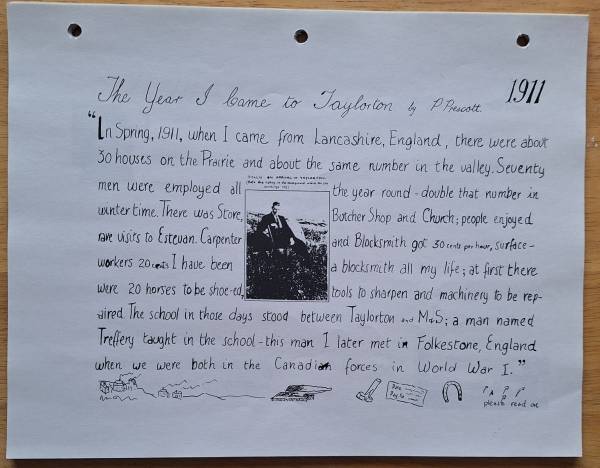 The Year I Came to Taylorton by P. Prescott.
1911
"In Spring, 1911, when I came from Lancashire, England, there were about
30 houses on the Prairie and about the same number in the valley. Seventy
men were employed all the year round - double that number in
winter time. There was Store, Butcher Shop and Church; people enjoyed
rare visits to Estevan. Carpenter and Blacksmith got 30 cents per hour, surface-
workers 20 cents I have been a blacksmith all my life; at first there
were 20 horses to be shoe-ed, tools to sharpen and machinery to be rep-
aired. The school in those days stood between Taylorton and M&S; a man named
Treffery taught in the school - this man I later met in Folkestone, England
when we were both in the Canadian forces in World War I."
please read on